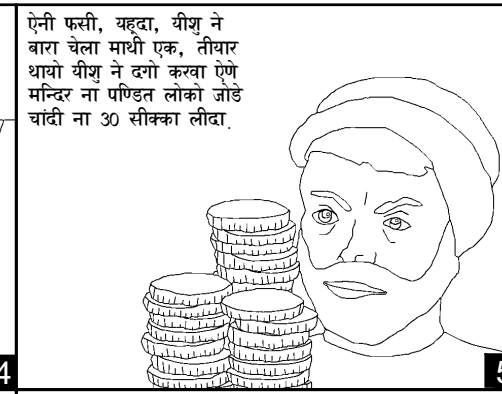 ऐनी फसी, यहूदा, यीशु ने
बारा चेला माथी एक, तीयार
थायो यीशु ने दगो करवा ऐणे
मन्दिर ना पण्डित लोको जोडे
चांदी ना 30 सीक्का लीदा.
4
5